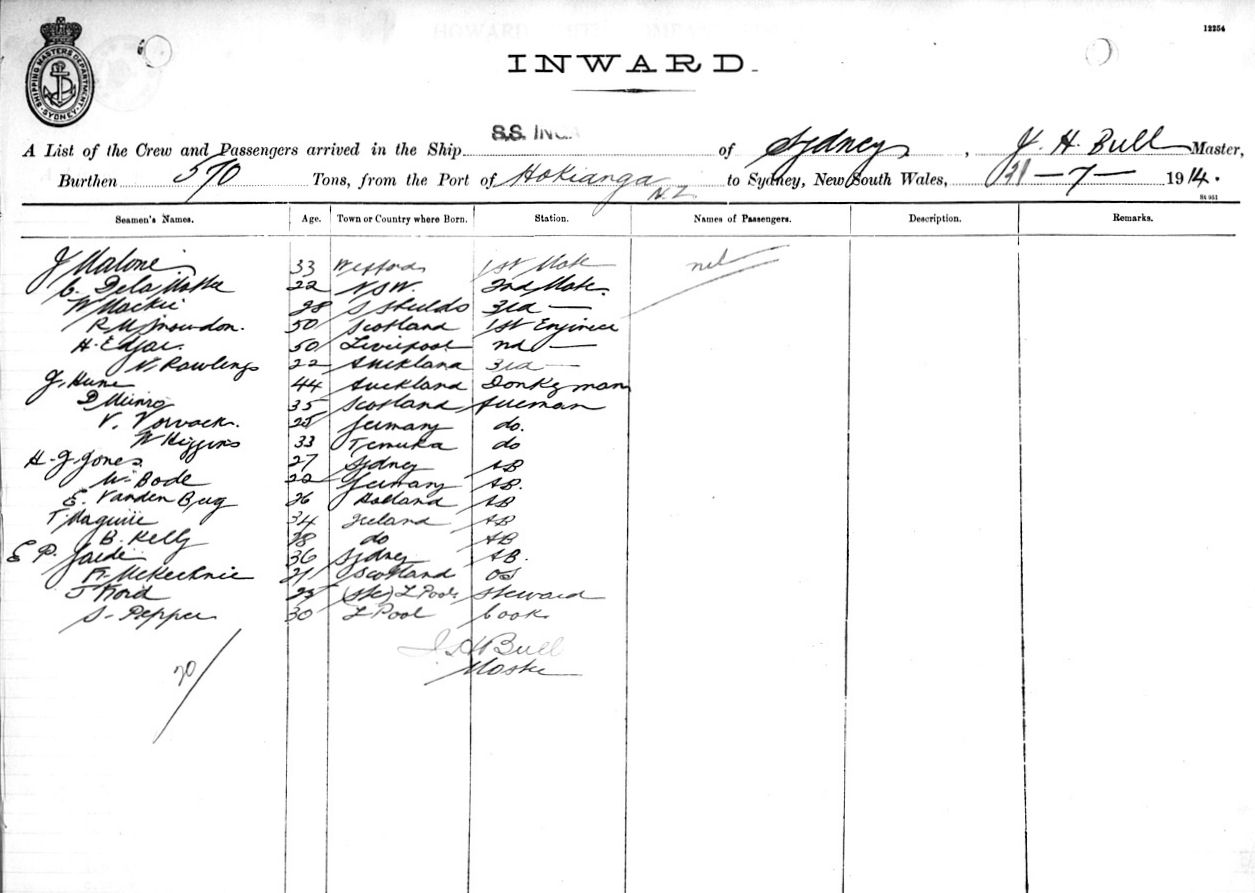 12254
SHIPPING MASTERS DEPARTMENT SYDNEY
INWARD.
A List of the Crew and Passengers arrived in the Ship S.S. of Sydney, J. H. Bull Master,
Burthen 570 Tons, from the Port of Hokianga N.Z. to Sydney, New South Wales, 31-7-1914.
Seamen's Names. Age. Town or Country where Born. Station. Names of Passengers. Description. Remarks.
J Malone 33 Wexford 1st Mate nil
22 N.S.W. 2nd Mate
W Mackie 28 S Shields 3rd —
R M Snowdon. 50 Scotland 1st Engineer
H. Edgar. 50 Liverpool nd —
N. Rawlings 22 Auckland 3rd —
J. Hume 44 Auckland Donkeyman
D Munro 35 Scotland Fireman
V. 25 Germany do.
W Higgins 33 Temuka do
H. J Jones 27 Sydney AB
W. Bode 22 Germany AB.
E. Vanden Burg 26 Holland AB
T Maguire 34 Ireland AB
B. Kelly 38 do AB
E P. 36 Sydney AB.
McKechnie 21 Scotland OS
J Ford 23 L Pool Steward
S. Pepper 30 L Pool Cook
J H Bull
Master
20/